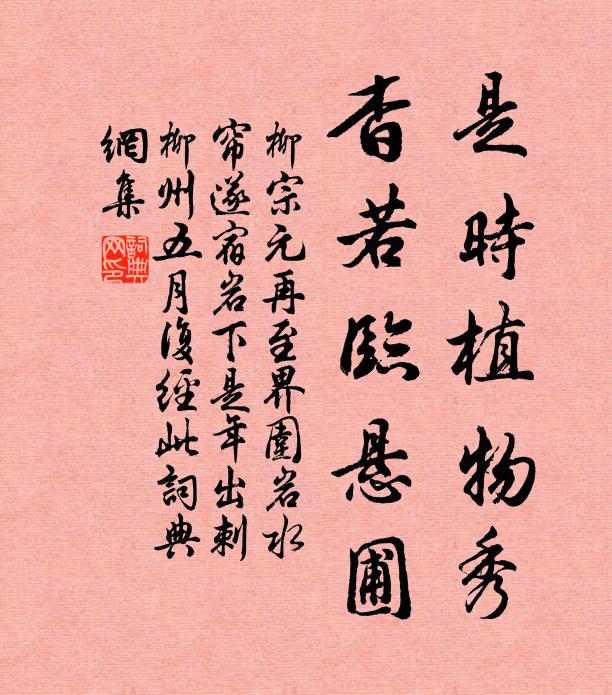 是時植物秀
杳若臨悬圃
柳宗元再至界圍岩水
帘遂宿岩下是年出刺
柳州五月復經此詞典
網集
詞典
网印